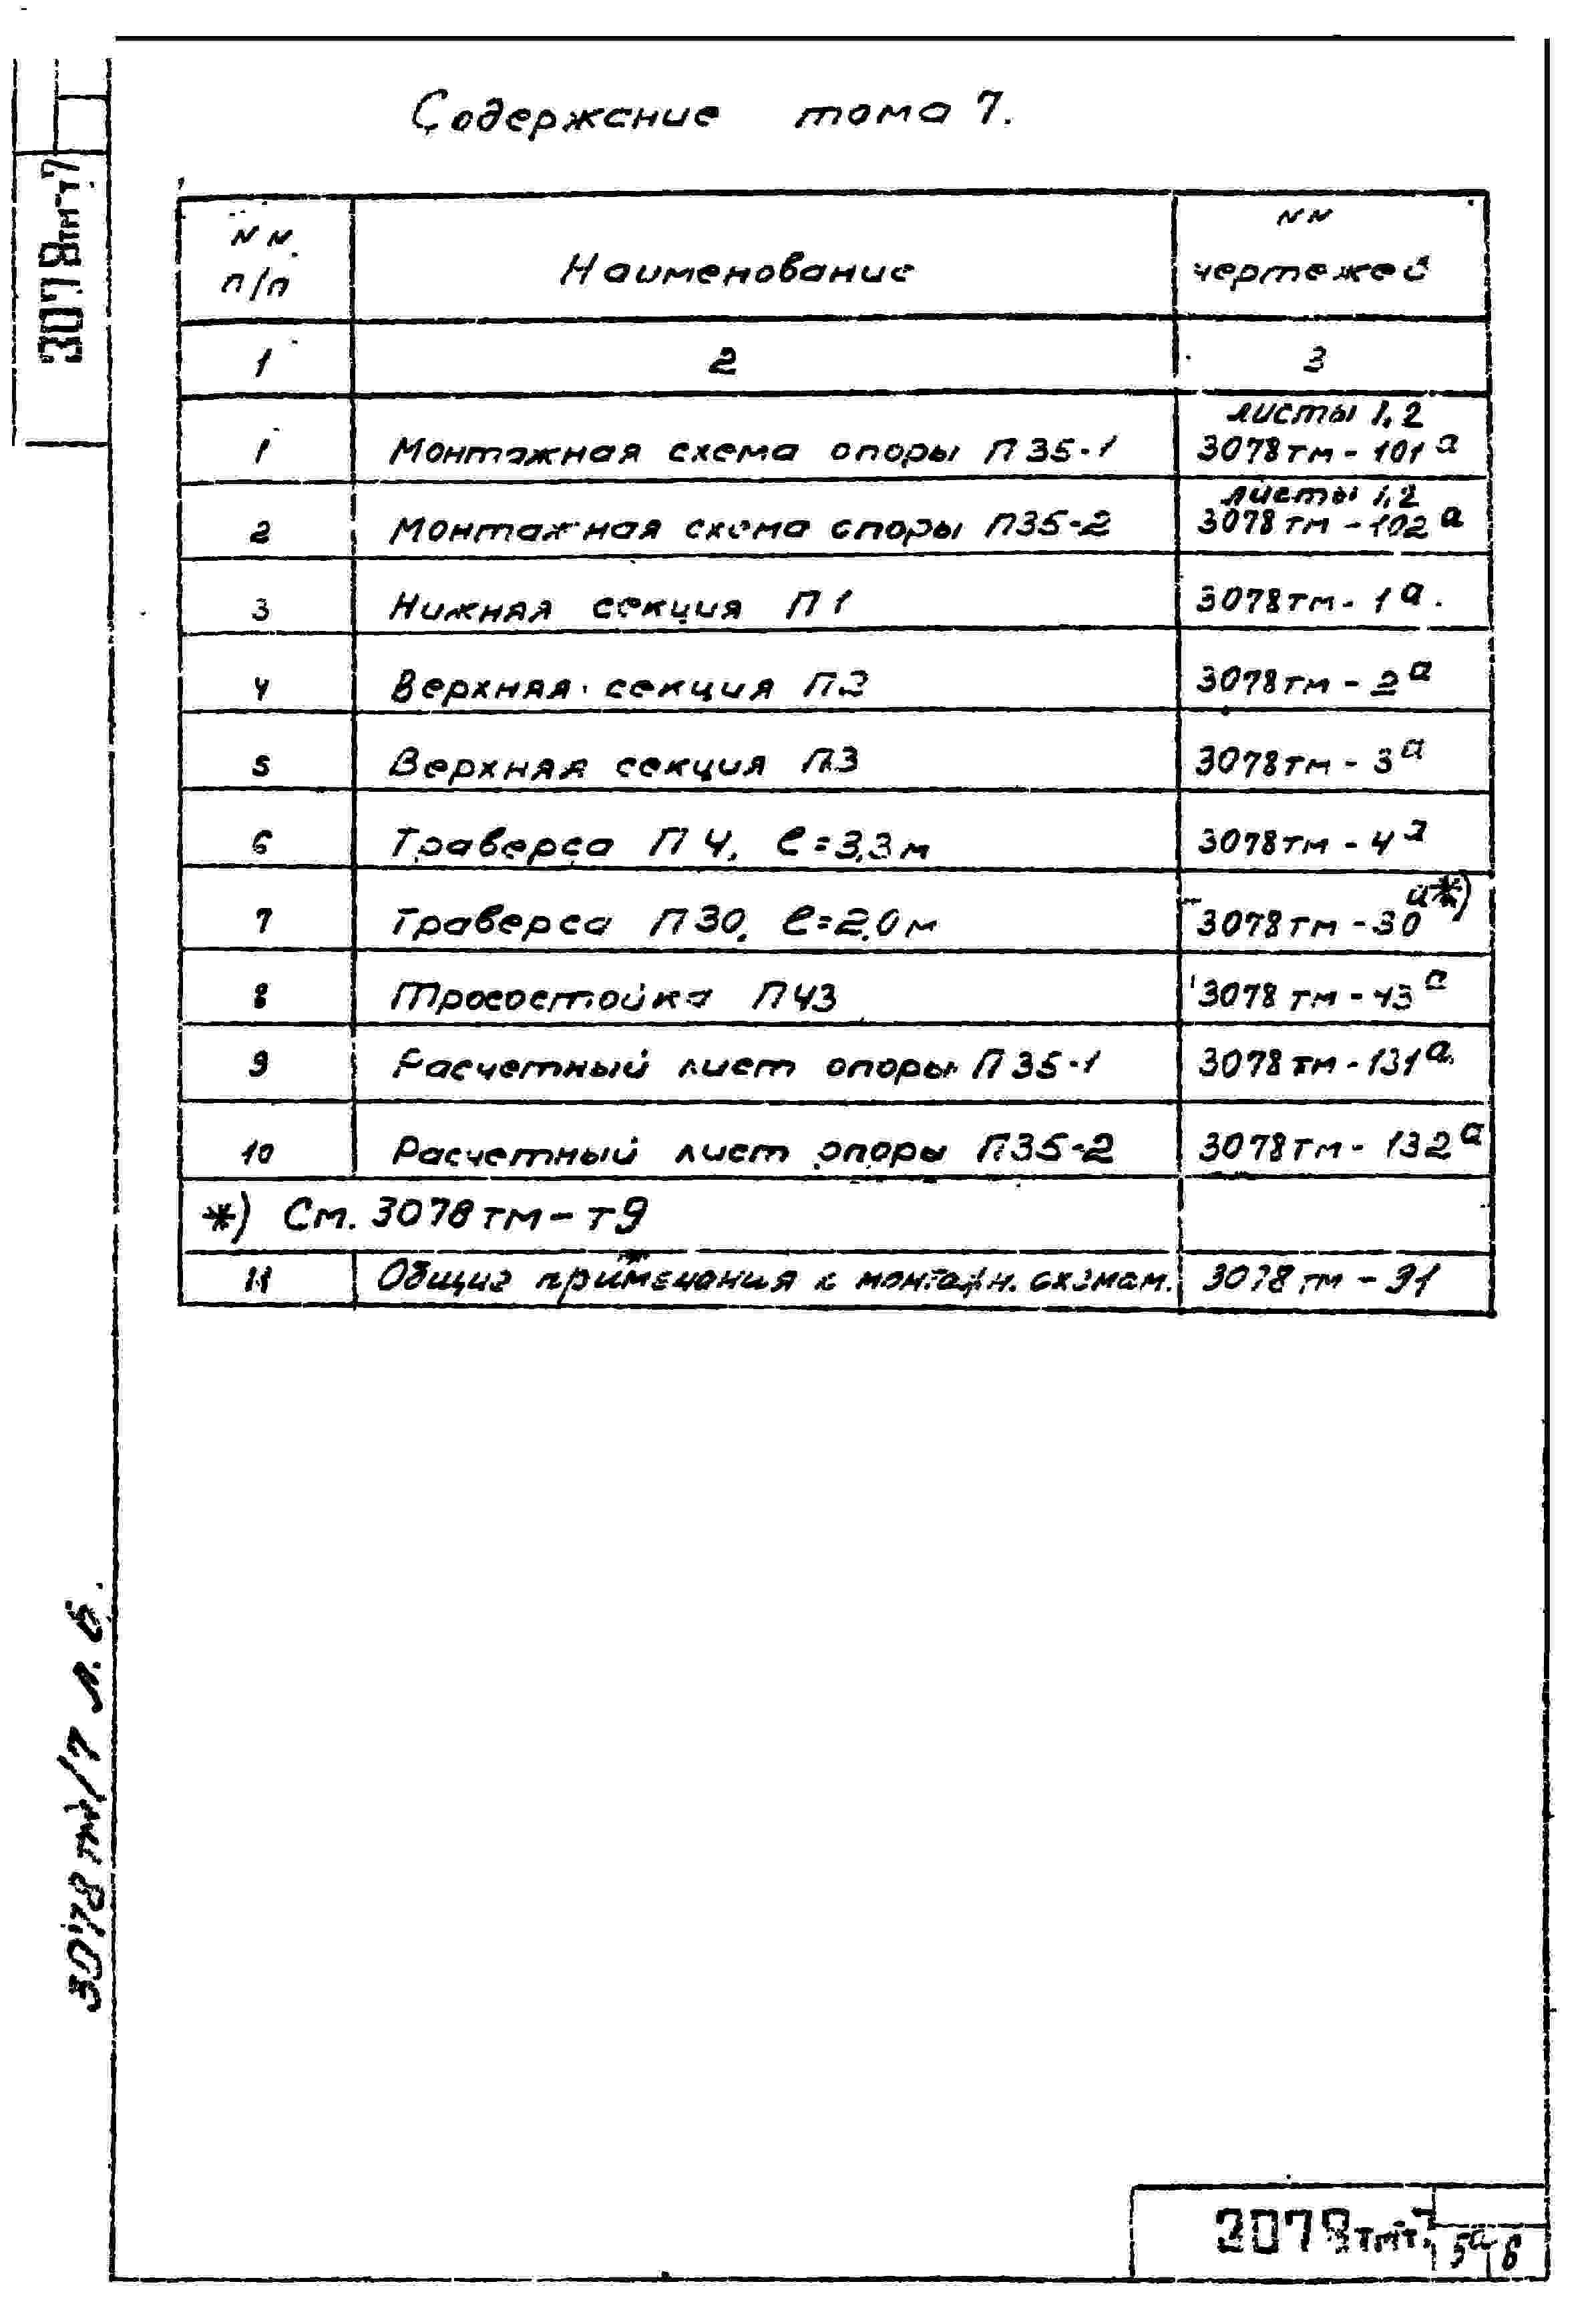 Содержание тома 7.
3078тм-т7
NN п/п Наименование NN чертежей
1 2 3
листы 1,2
1 Монтажная схема опоры П35-1 3078тм-101а
листы 1,2
2 Монтажная схема опоры П35-2 3078тм-102а
3 Нижняя секция П1 3078тм-1а.
4 Верхняя секция П2 3078тм-2а
5 Верхняя секция П3 3078тм-3а
6 Траверса П4, ℓ=3,3м 3078тм-4а
7 Траверса П30, ℓ=2,0м 3078тм-30а*)
8 Тросостойка П43 3078тм-43а
9 Расчетный лист опоры П35-1 3078тм-131а
10 Расчетный лист опоры П35-2 3078тм-132а
*) См. 3078тм-т9
11 Общие примечания к монтажн. схемам. 3078тм-91
3078тм/7 л. 6.
3078тм-т7 5а 6